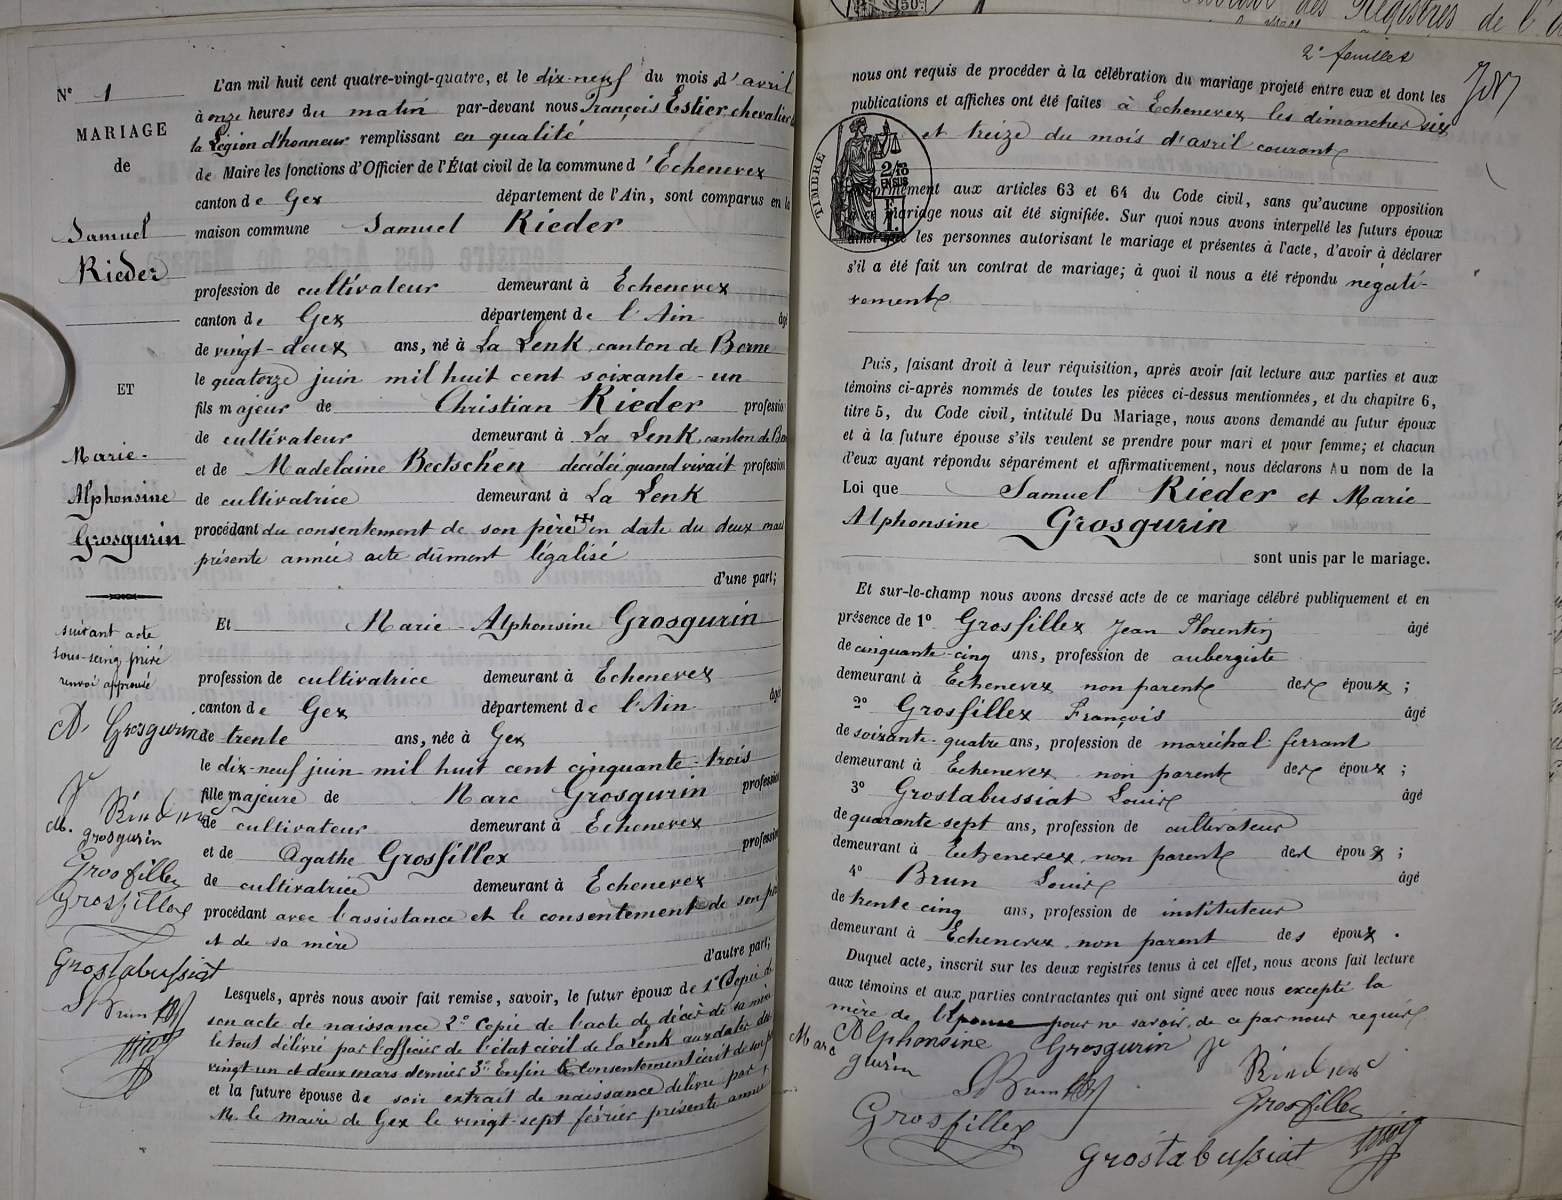 N° 1
MARIAGE
de
Samuel
Rieder
ET
Marie-
Alphonsine
Grosgurin
suivant acte
sous-seing privé
renvoi approuvé
A. Grosgurin
M. grosgurin
Grosfillex
Grosfillex
Grostabussiat
L Brun
L'an mil huit cent quatre-vingt-quatre, et le dix-neuf du mois d'avril
à onze heures du matin par-devant nous François Estier, chevalier
la Légion d'honneur remplissant en qualité
de Maire les fonctions d'Officier de l'État civil de la commune d'Echenevex
canton de Gex département de l'Ain, sont comparus en la
maison commune Samuel Rieder
profession de cultivateur demeurant à Echenevex
canton de Gex département de l'Ain âgé
de vingt-deux ans, né à La Lenk, canton de Berne
le quatorze juin mil huit cent soixante-un
fils majeur de Christian Rieder profession
de cultivateur demeurant à La Lenk, canton de
et de Madelaine Bectschen décédée quand vivait profession
de cultivatrice demeurant à La Lenk
procédant du consentement de son père en date du deux mars
présente année acte dûment légalisé
d'une part;
Et Marie-Alphonsine Grosgurin
profession de cultivatrice demeurant à Echenevex
canton de Gex département de l'Ain âgé
de trente ans, née à Gex
le dix-neuf juin mil huit cent cinquante-trois
fille majeure de Marc Grosgurin profession
de cultivateur demeurant à Echenevex
et de Agathe Grosfillex profession
de cultivatrice demeurant à Echenevex
procédant avec l'assistance et le consentement de son père
et de sa mère
d'autre part;
Lesquels, après nous avoir fait remise, savoir, le futur époux de 1° Copie de
son acte de naissance 2° Copie de l'acte de décès de sa mère
le tout délivré par l'officier de l'état civil de La Lenk aux dates des
vingt un et deux mars dernier 3° Enfin le consentement écrit de son père
et la future épouse de son extrait de naissance délivré par
M. le maire de Gex le vingt-sept février présente année
2e feuillet
nous ont requis de procéder à la célébration du mariage projeté entre eux et dont les
publications et affiches ont été faites à Echenevex les dimanches six
et treize du mois d'avril courant
TIMBRE
conformément aux articles 63 et 64 du Code civil, sans qu'aucune opposition
à ce mariage nous ait été signifiée. Sur quoi nous avons interpellé les futurs époux
ainsi que les personnes autorisant le mariage et présentes à l'acte, d'avoir à déclarer
s'il a été fait un contrat de mariage; à quoi il nous a été répondu négati-
vement
Puis, faisant droit à leur réquisition, après avoir fait lecture aux parties et aux
témoins ci-après nommés de toutes les pièces ci-dessus mentionnées, et du chapitre 6,
titre 5, du Code civil, intitulé Du Mariage, nous avons demandé au futur époux
et à la future épouse s'ils veulent se prendre pour mari et pour femme; et chacun
d'eux ayant répondu séparément et affirmativement, nous déclarons Au nom de la
Loi que Samuel Rieder et Marie
Alphonsine Grosgurin
sont unis par le mariage.
Et sur-le-champ nous avons dressé acte de ce mariage célébré publiquement et en
présence de 1° Grosfillex Jean Florentin âgé
de cinquante-cinq ans, profession de aubergiste
demeurant à Echenevex non parent des époux;
2° Grosfillex François âgé
de soixante-quatre ans, profession de maréchal-ferrant
demeurant à Echenevex non parent des époux;
3° Grostabussiat Louis âgé
de quarante sept ans, profession de cultivateur
demeurant à Echenevex, non parent des époux;
4° Brun Louis âgé
de trente cinq ans, profession de instituteur
demeurant à Echenevex non parent des époux.
Duquel acte, inscrit sur les deux registres tenus à cet effet, nous avons fait lecture
aux témoins et aux parties contractantes qui ont signé avec nous excepté la
mère de l'épouse pour ne savoir, de ce par nous requis
Alphonsine Grosgurin
Marc
gurin
L Brun
Grosfillex
Grosfillex
Grostabussiat